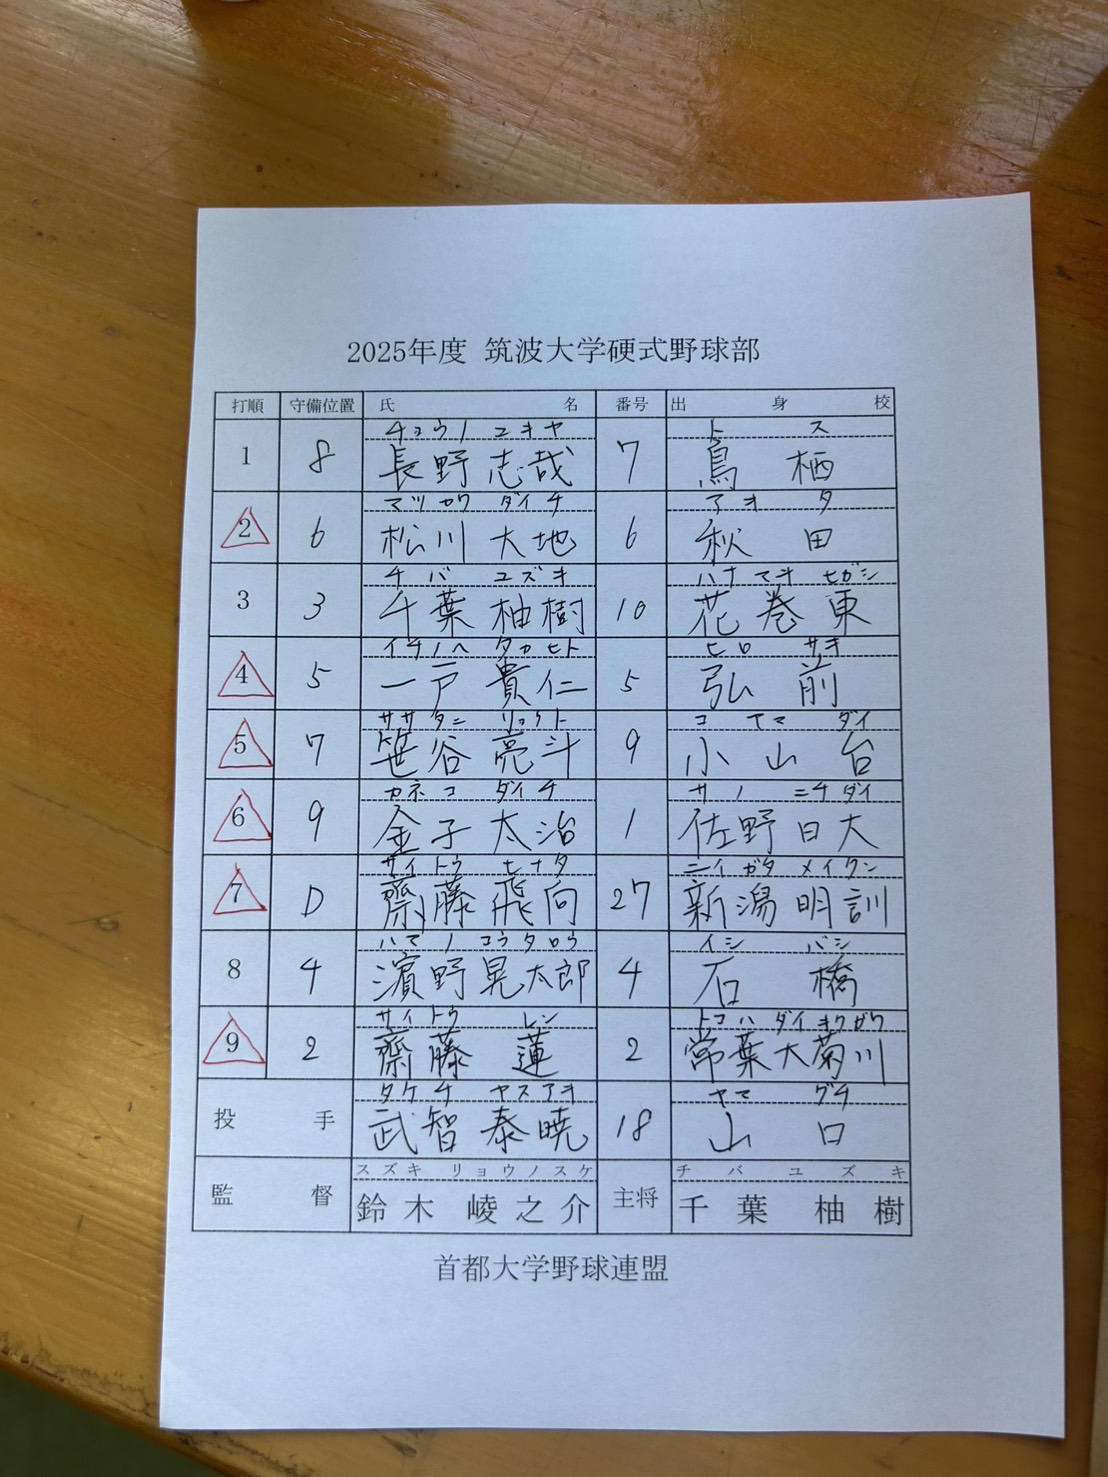 2025年度 筑波大学硬式野球部
打順 守備位置 氏名 番号 出身校
チョウノ ユキヤ トス
1 8 長野 志哉 7 鳥栖
マツカワ ダイチ アキタ
2 6 松川 大地 6 秋田
チバ ユズキ ハナマキヒガシ
3 3 千葉 柚樹 10 花巻東
イチノヘ タカヒト ヒロサキ
4 5 一戸 貴仁 5 弘前
ササタニ リョウト コヤマダイ
5 7 笹谷 亮斗 9 小山台
カネコ ダイチ サノニチダイ
6 9 金子 太治 1 佐野日大
サイトウ ヒナタ ニイガタメイクン
7 D 齋藤 飛向 27 新潟明訓
ハマノ コウタロウ イシバシ
8 4 濱野 晃太郎 4 石橋
サイトウ レン トコハダイキクガワ
9 2 齋藤 蓮 2 常葉大菊川
タケチ ヤスアキ ヤマグチ
投手 武智 泰暁 18 山口
スズキ リョウノスケ チバ ユズキ
監督 鈴木 崚之介 主将 千葉 柚樹
首都大学野球連盟